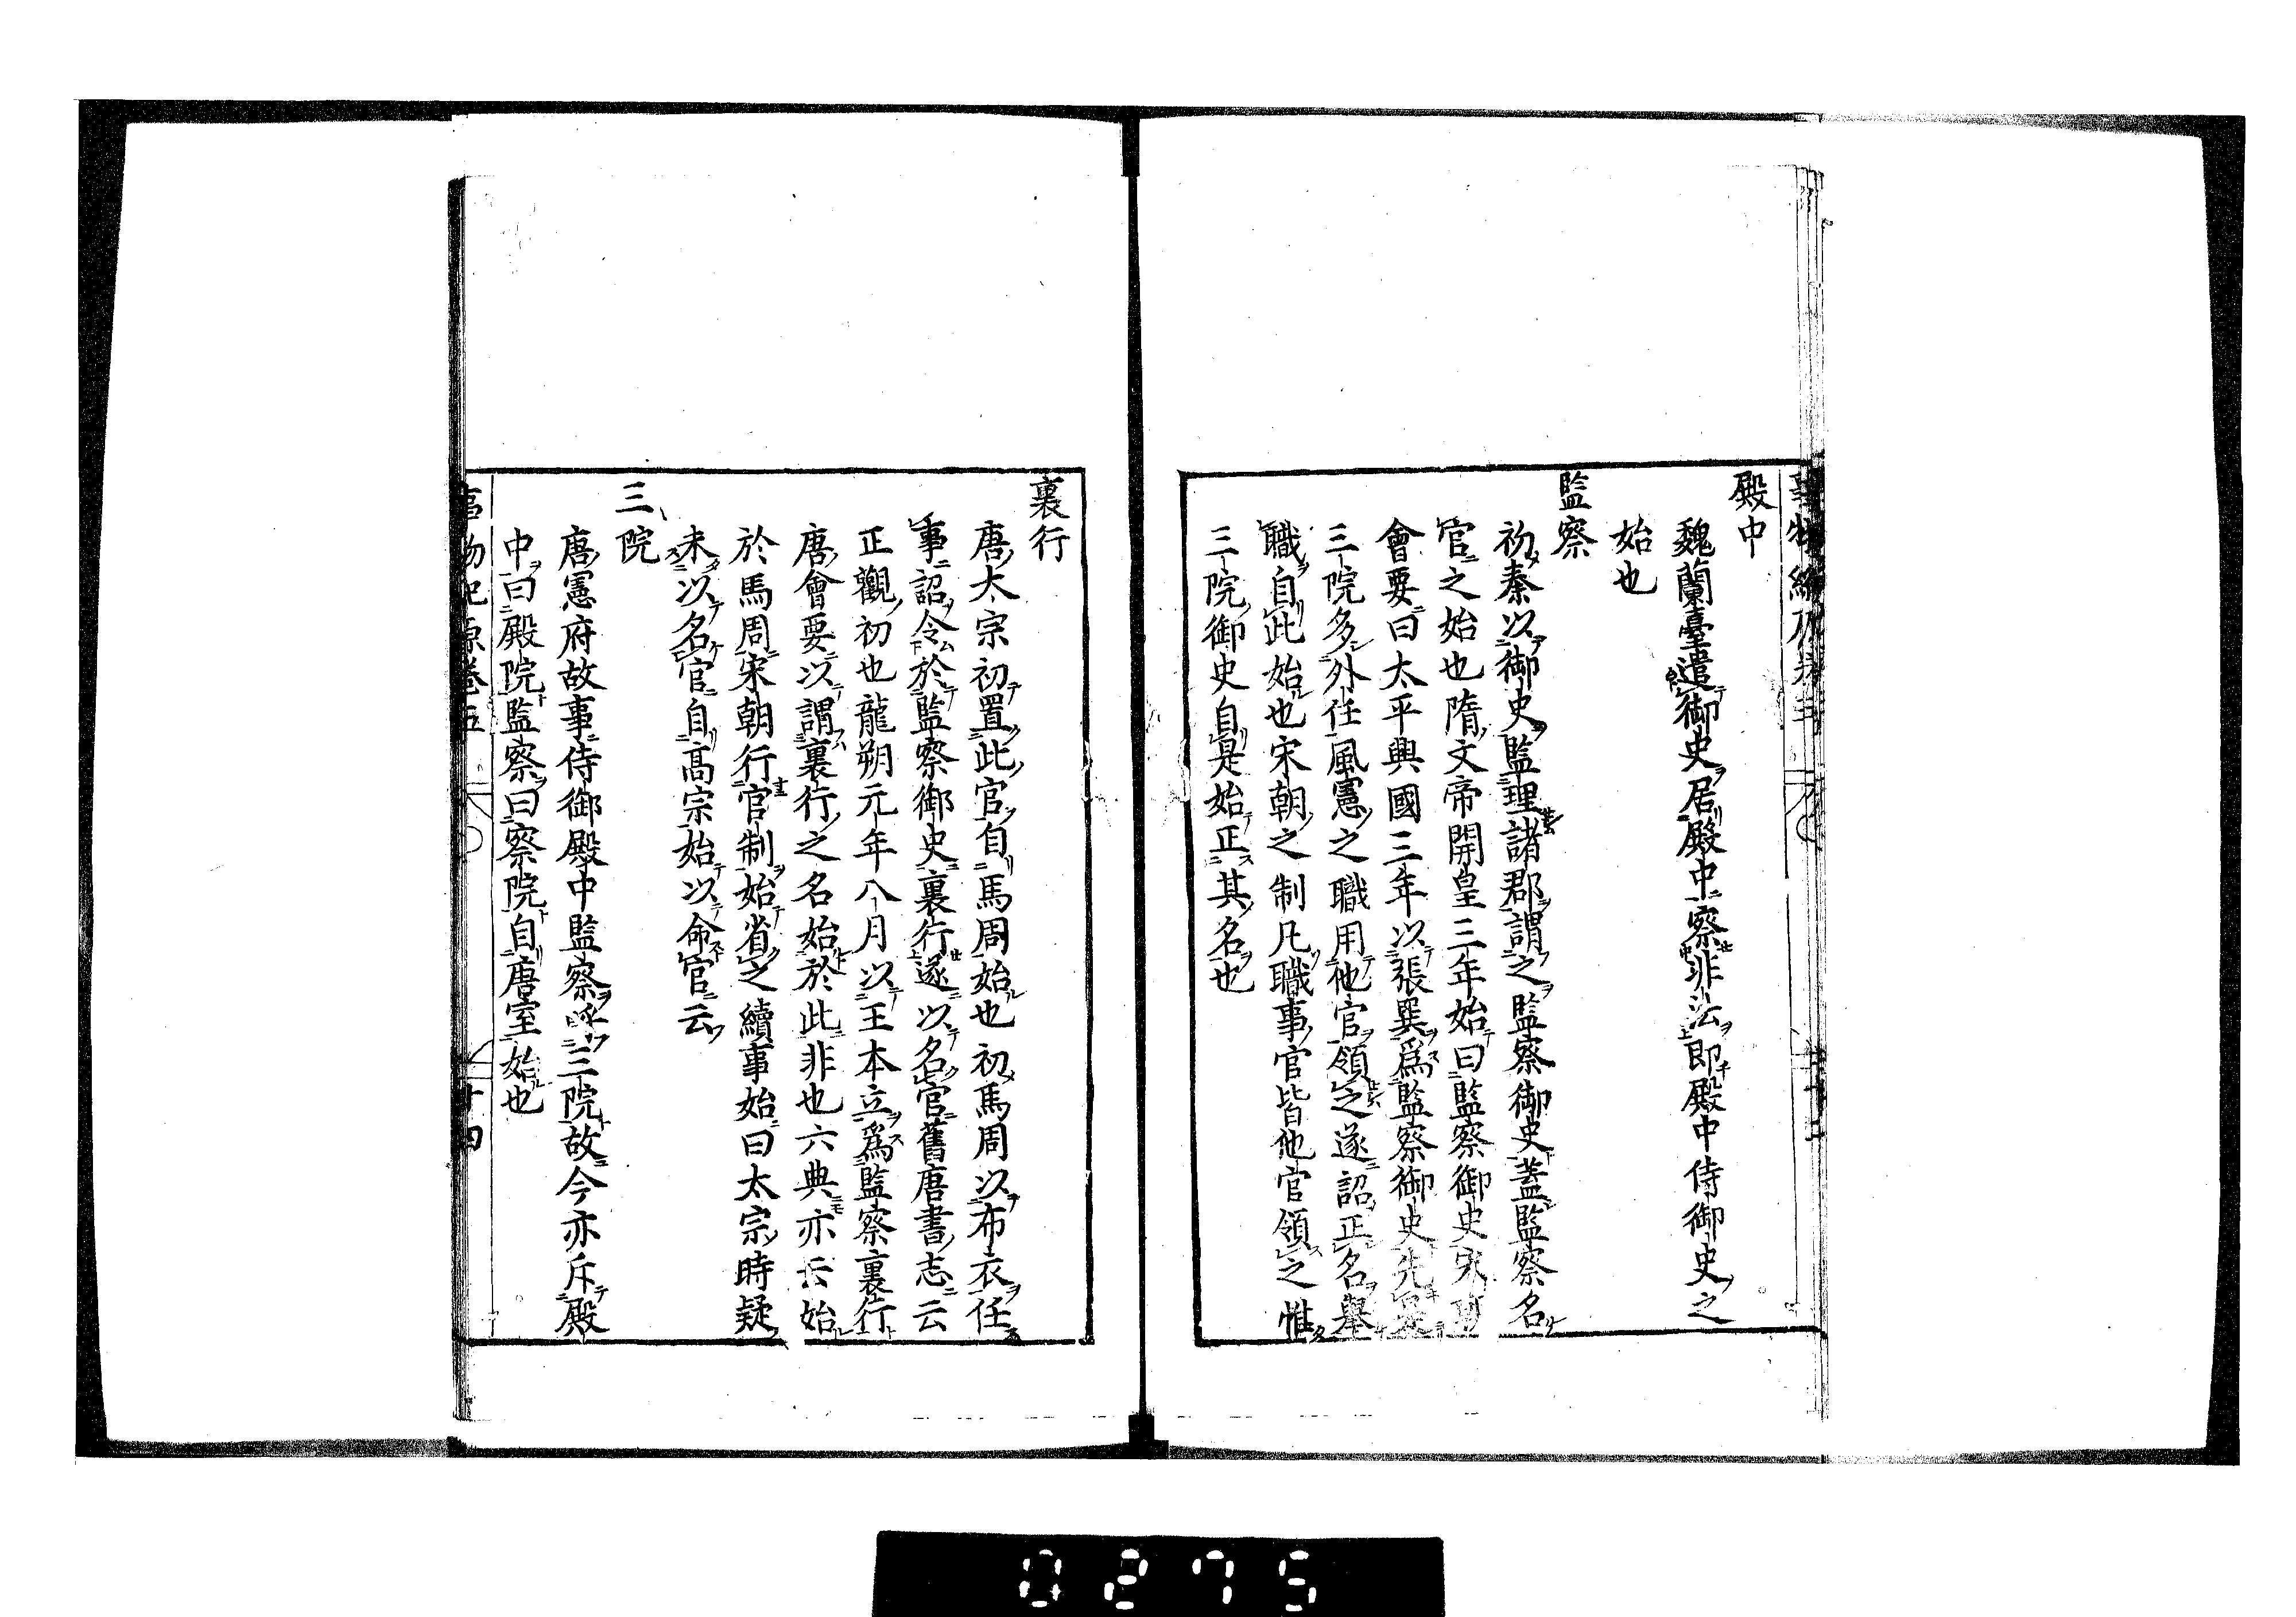 殿中
魏蘭臺遣御史居殿中察非法即殿中侍御史之
始也
監察
初秦以御史監理諸郡謂之監察御史蓋監察名
官之始也隋文帝開皇三年始曰監察御史宋朝
會要曰太平興國三年以張巽爲監察御史先是
三院多外任風憲之職用他官領之遂詔正名舉
職自此始也宋朝之制凡職事官皆他官領之惟
三院御史自是始正其名也
裏行
唐太宗初置此官自馬周始也初馬周以布衣任
事詔令於監察御史裏行遂以名官舊唐書志云
正觀初也龍朔元年八月以王本立爲監察裏行
唐會要以謂裏行之名始於此非也六典亦云始
於馬周宋朝行官制始省之續事始曰太宗時疑
未以名官自高宗始以命官云
三院
唐憲府故事侍御殿中監察呼三院故今亦斥殿
中曰殿院監察曰察院自唐室始也
事物紀原卷五
十四
0275